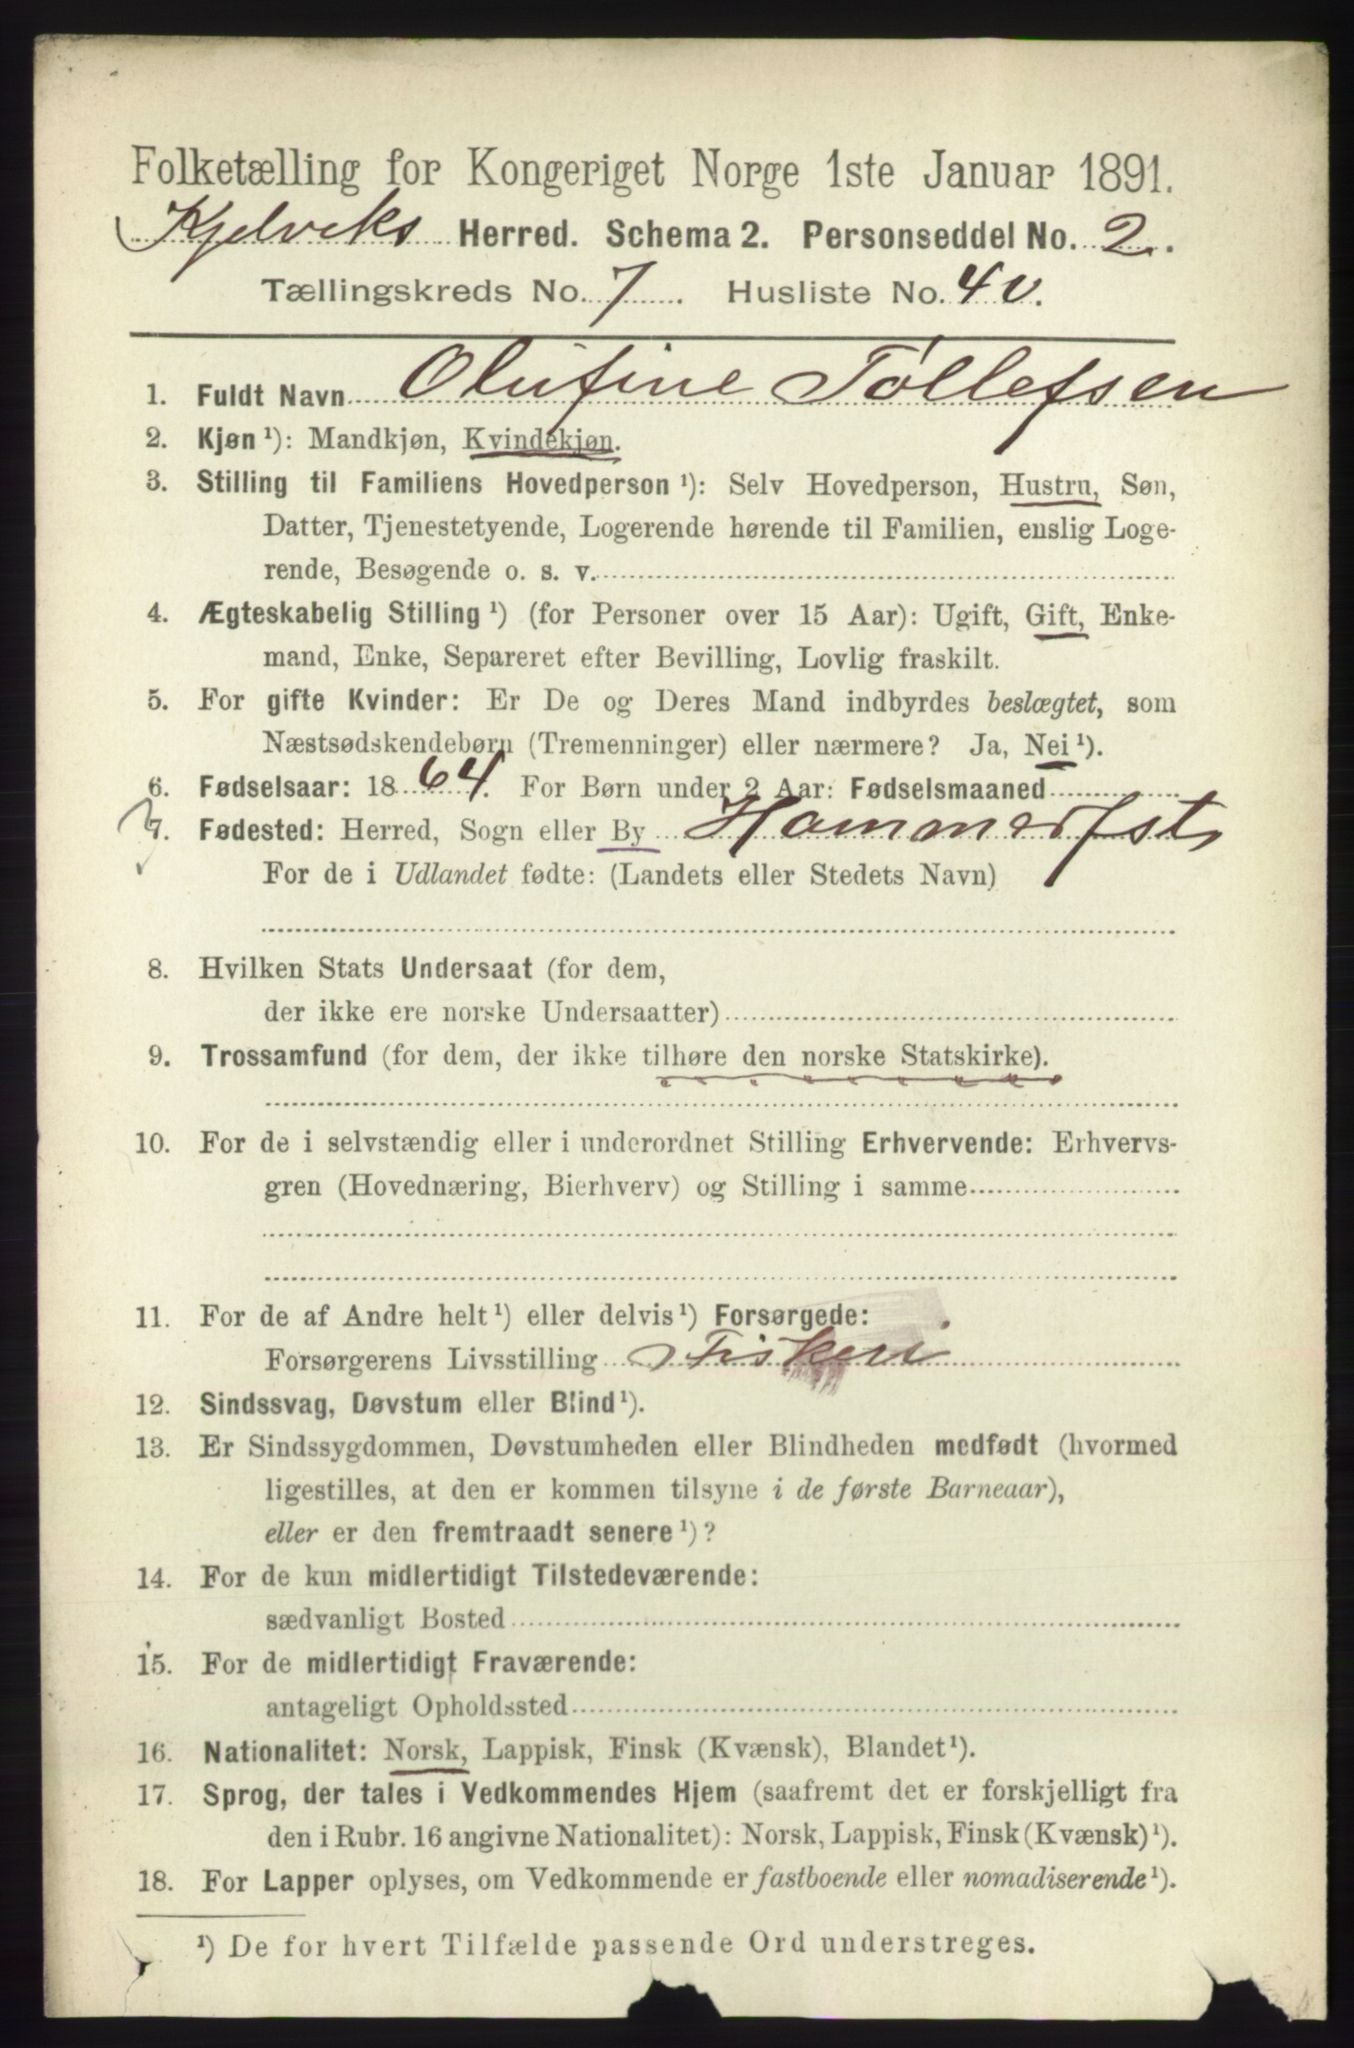 Folketælling for Kongeriget Norge 1ste Januar 1891.
Kjelviks Herred. Schema 2. Personseddel No. 2.
Tællingskreds No. 7 Husliste No. 40.
1. Fuldt Navn Olufine Tollefsen
2. Kjøn ¹): Mandkjøn, Kvindekjøn.
3. Stilling til Familiens Hovedperson ¹): Selv Hovedperson, Hustru, Søn,
Datter, Tjenestetyende, Logerende hørende til Familien, enslig Loge-
rende, Besøgende o. s. v.
4. Ægteskabelig Stilling ¹) (for Personer over 15 Aar): Ugift, Gift, Enke-
mand, Enke, Separeret efter Bevilling, Lovlig fraskilt.
5. For gifte Kvinder: Er De og Deres Mand indbyrdes beslægtet, som
Næstsødskendebørn (Tremenninger) eller nærmere? Ja, Nei ¹).
6. Fødselsaar: 1864. For Børn under 2 Aar: Fødselsmaaned
7. Fødested: Herred, Sogn eller By Hammerfst
For de i Udlandet fødte: (Landets eller Stedets Navn)
8. Hvilken Stats Undersaat (for dem,
der ikke ere norske Undersaatter)
9. Trossamfund (for dem, der ikke tilhøre den norske Statskirke).
10. For de i selvstændig eller i underordnet Stilling Erhvervende: Erhvervs-
gren (Hovednæring, Bierhverv) og Stilling i samme
11. For de af Andre helt ¹) eller delvis ¹) Forsørgede:
Forsørgerens Livsstilling Fiskeri
12. Sindssvag, Døvstum eller Blind ¹).
13. Er Sindssygdommen, Døvstumheden eller Blindheden medfødt (hvormed
ligestilles, at den er kommen tilsyne i de første Barneaar),
eller er den fremtraadt senere ¹)?
14. For de kun midlertidigt Tilstedeværende:
sædvanligt Bosted
15. For de midlertidigt Fraværende:
antageligt Opholdssted
16. Nationalitet: Norsk, Lappisk, Finsk (Kvænsk), Blandet ¹).
17. Sprog, der tales i Vedkommendes Hjem (saafremt det er forskjelligt fra
den i Rubr. 16 angivne Nationalitet): Norsk, Lappisk, Finsk (Kvænsk) ¹).
18. For Lapper oplyses, om Vedkommende er fastboende eller nomadiserende ¹).
¹) De for hvert Tilfælde passende Ord understreges.